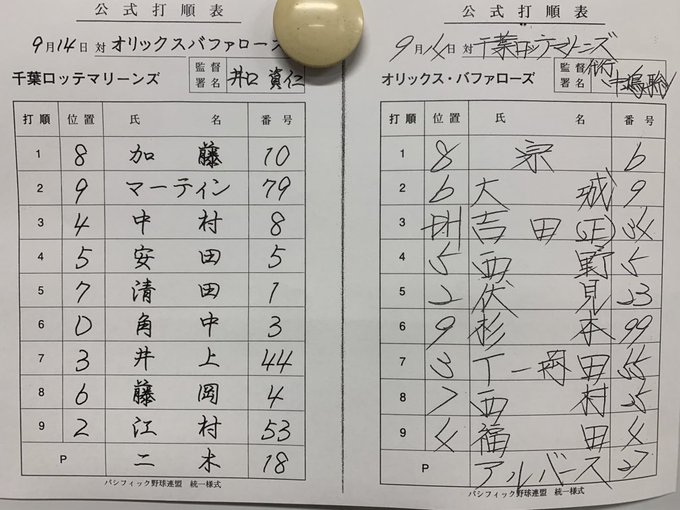 公式打順表
9月14日 対 オリックスバファローズ
千葉ロッテマリーンズ 監督署名 井口資仁
打順 位置 氏名 番号
1 8 加藤 10
2 9 マーティン 79
3 4 中村 8
4 5 安田 5
5 7 清田 1
6 D 角中 3
7 3 井上 44
8 6 藤岡 4
9 2 江村 53
P 二木 18
パシフィック野球連盟 統一様式
公式打順表
9月14日 対 千葉ロッテマリーンズ
オリックス・バファローズ 監督署名 中嶋聡
打順 位置 氏名 番号
1 8 宗 6
2 6 大城 9
3 DH 吉田(正) 34
4 5 西野 5
5 2 伏見 23
6 9 杉本 99
7 3 T-岡田 55
8 7 西村 25
9 4 福田 4
P アルバース 27
パシフィック野球連盟 統一様式